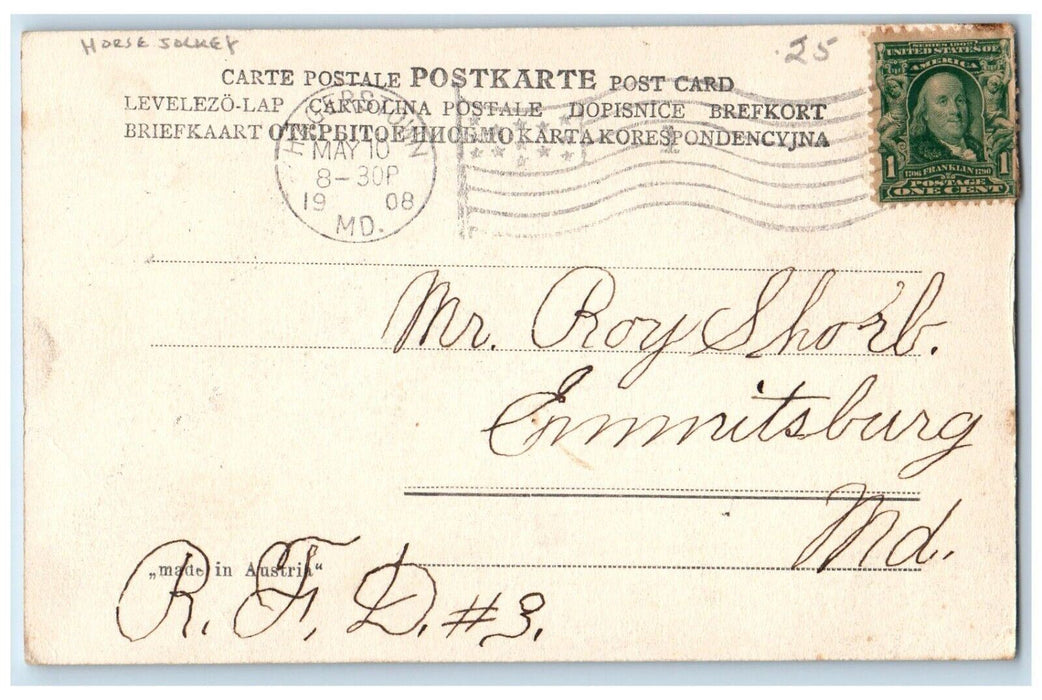 HORSE JOCKEY
.25
CARTE POSTALE POSTKARTE POST CARD
LEVELEZŐ-LAP CARTOLINA POSTALE DOPISNICE BREFKORT
BRIEFKAART ОТКРЫТОЕ ПИСЬМО KARTA KORESPONDENCYJNA
SERIES 1902
UNITED STATES OF
AMERICA
1 1
1706 FRANKLIN 1790
POSTAGE
ONE CENT
HAGERSTOWN
MAY 10
8-30P
19 08
MD.
Mr. Roy Shorb.
Emmitsburg
Md.
„made in Austria“
R. F. D. #3.